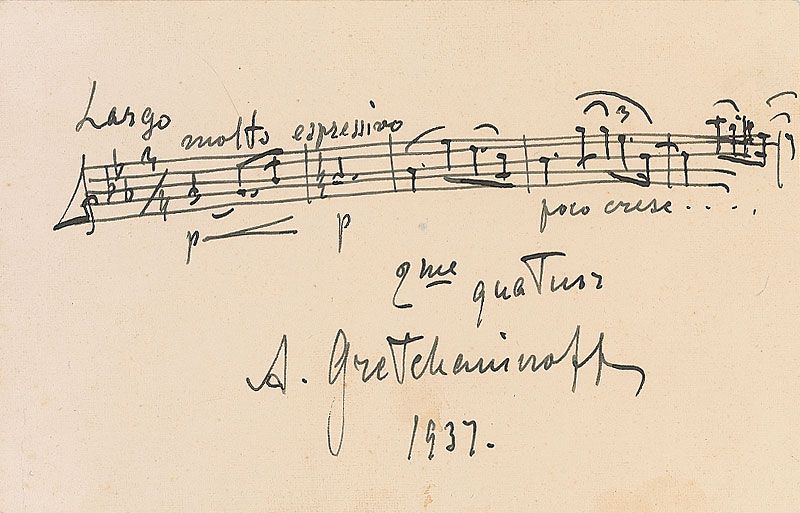 Largo molto espressivo
3
4
3
p p poco cresc . . . .
2me quatuor
A. Gretchaninoff
1937.